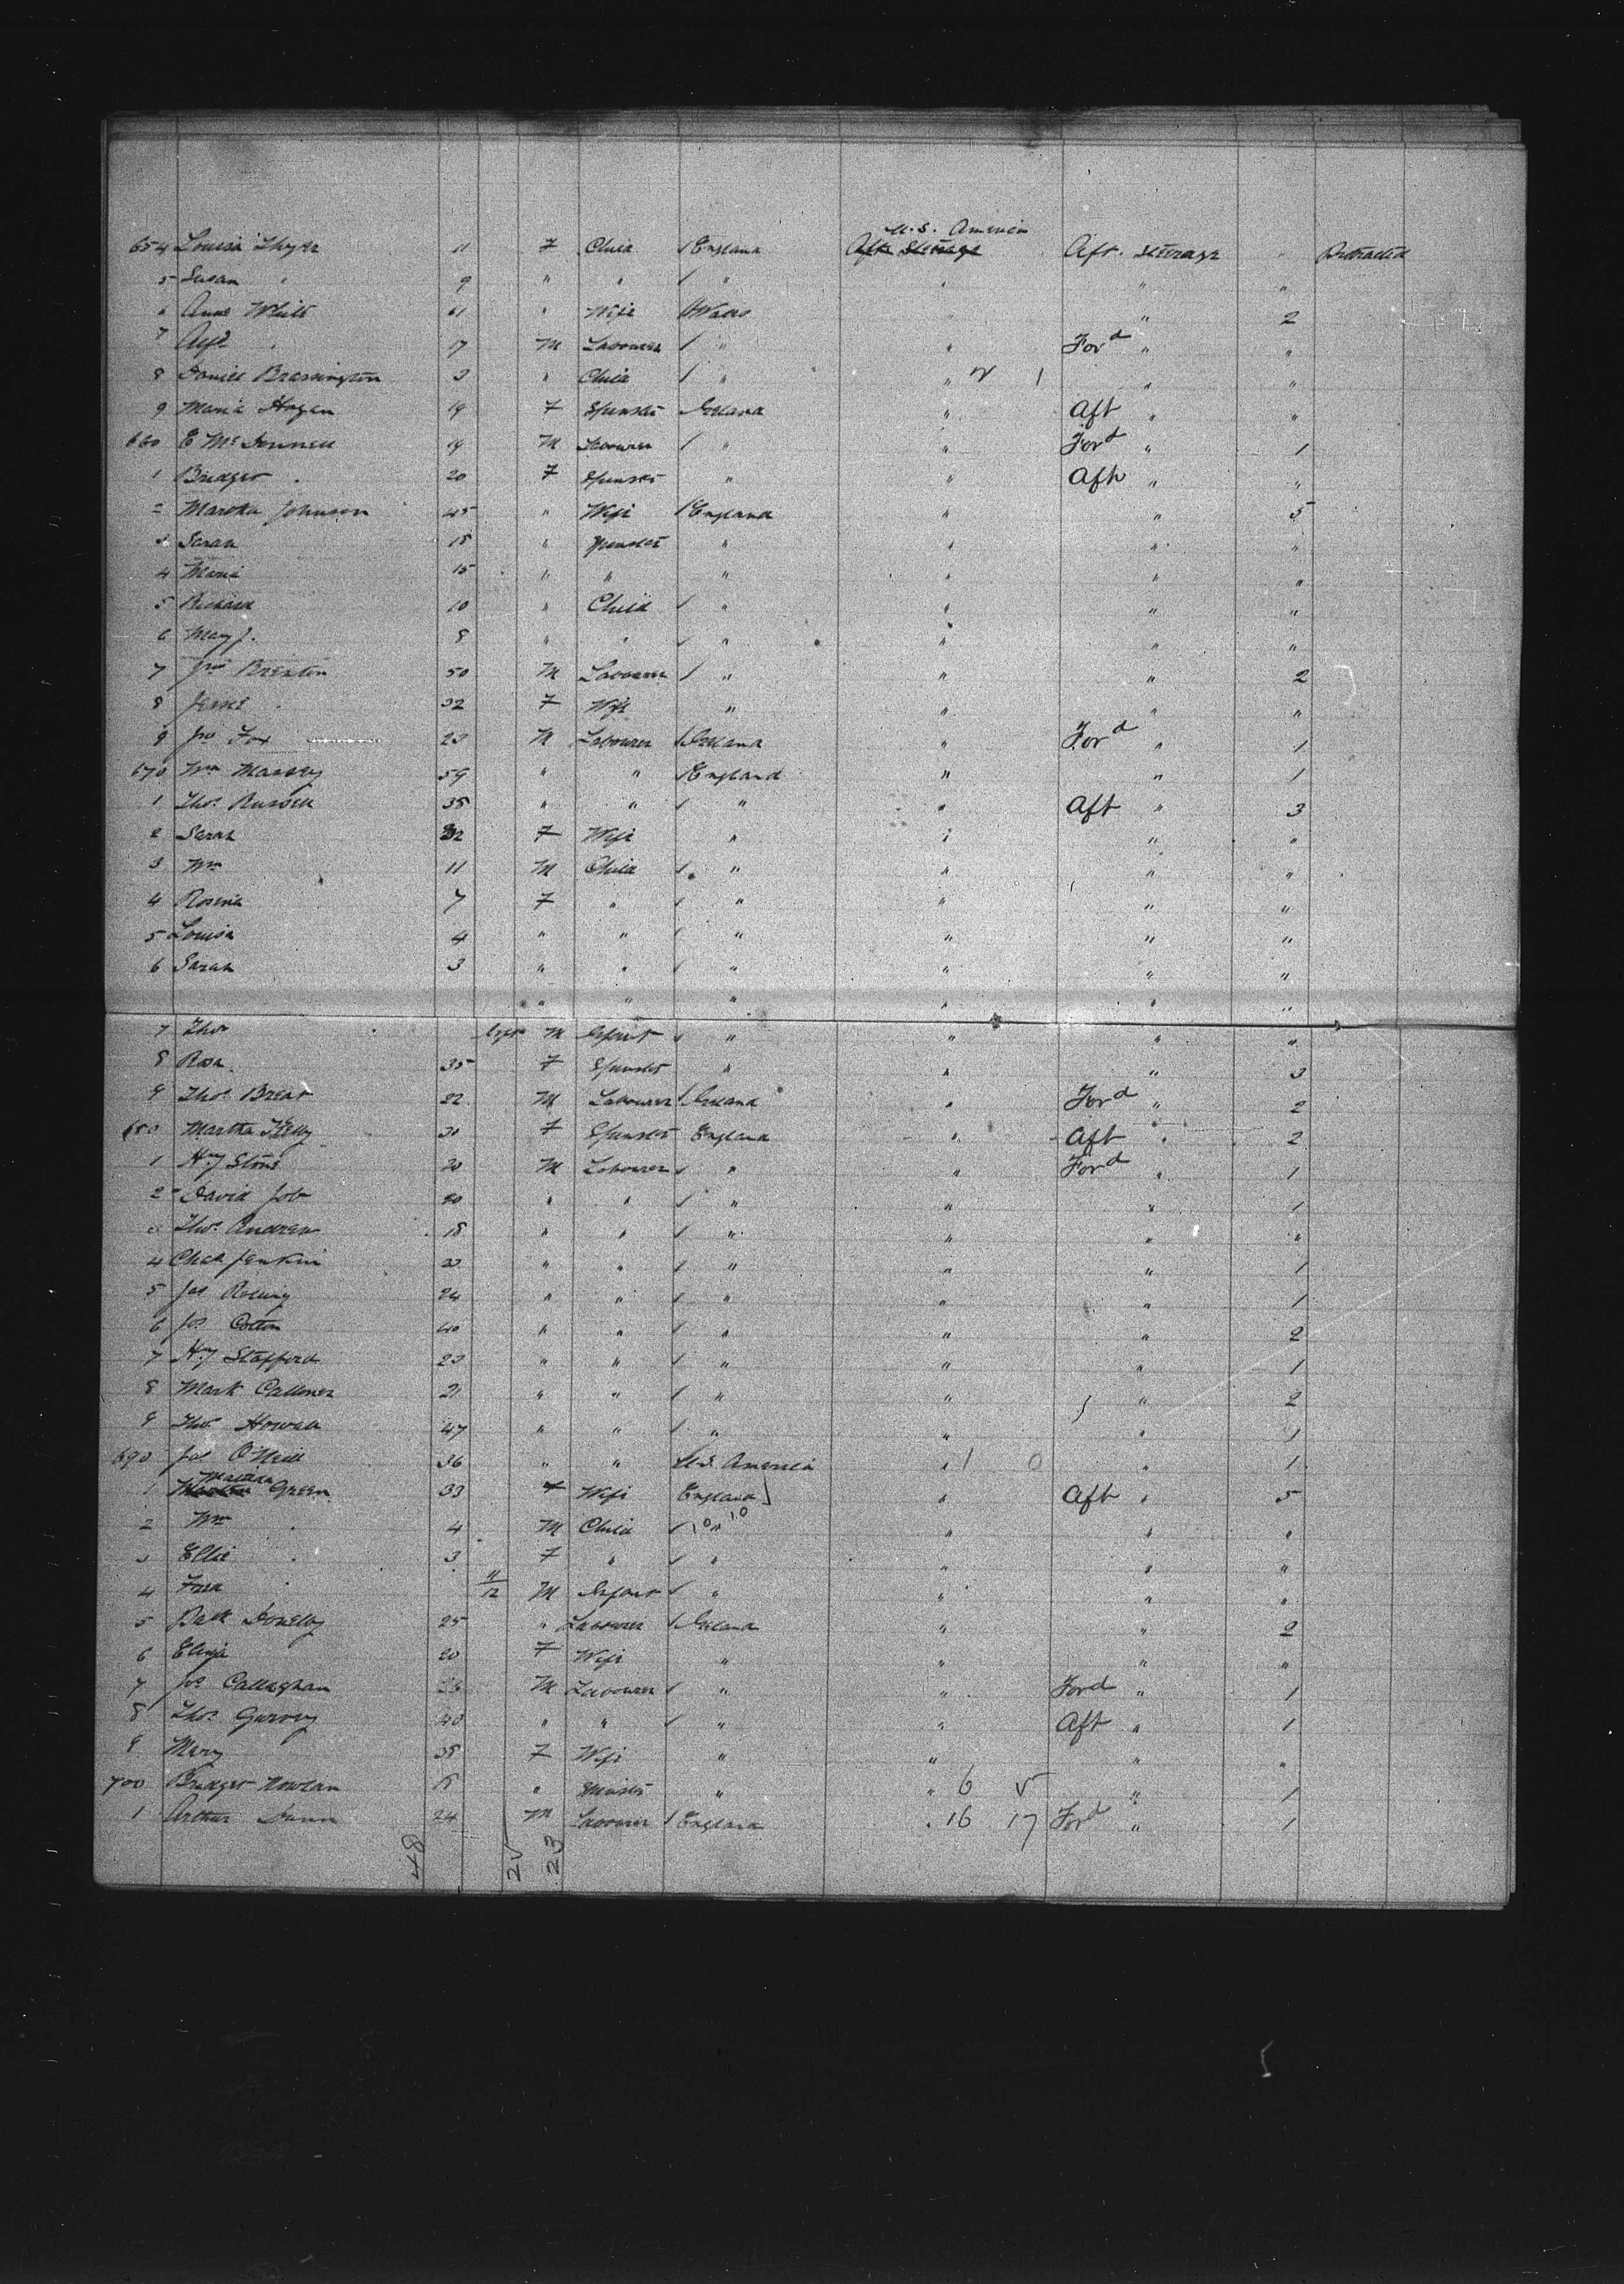 U.S. America
654 Louisa Thyer 11 F Child / England Aft Steerage Aft. Steerage " Protracted
5 Susan " 9 " " / " " " "
6 Anne White 61 " Wife // Wales " " 2
7 Alfd " 17 M Labourer / " " Ford " "
8 Daniel Brassington 3 " Child / " " 2 1 " "
9 Maria Hogan 19 F Spinster Ireland " Aft " "
660 E McDonnell 19 M Labourer / " " Ford " 1
1 Bridget " 20 F Spinster " " Aft " "
2 Martha Johnson 45 " Wife / England " " 5
3 Sarah 18 " Spinster " " " "
4 Maria 15 " " " " " "
5 Richard 10 " Child / " " " "
6 Mary J. 8 " " / " " " "
7 Jno Brenton 50 M Labourer / " " " 2
8 Jessie " 32 F Wife " " " "
9 Jno Fox 23 M Labourer / Ireland " Ford " 1
670 Wm Massey 59 " " / England " " 1
1 Thos Russell 35 " " / " " Aft " 3
2 Sarah 32 F Wife " " " "
3 Wm 11 M Child / " " " "
4 Rosina 7 F " / " " " "
5 Louisa 4 " " / " " " "
6 Sarah 3 " " / " " " "
" " " " " "
7 Thos M Infant / " " " "
8 Rosa 35 F Spinster " " " 3
9 Thos Brent 22 M Labourer / Ireland " Ford " 2
680 Martha Kelly 30 F Spinster England " Aft " 2
1 Hy Stone 20 M Labourer / " " Ford " 1
2 David Job 20 " " / " " " 1
3 Thos Andrew 18 " " / " " " "
4 Chas Jenkin 23 " " / " " " 1
5 Jas 24 " " / " " " 1
6 Jos Cotton 40 " " / " " " 2
7 Hy Stafford 23 " " / " " " 1
8 Mark 21 " " / " " " 2
9 Thos Howell 47 " " / " " " 1
690 Jas O'Neill 36 " " U.S. America " 1 0 " 1
Matilda
1 Green 33 F Wife England " Aft " 5
2 Wm " 4 M Child / " 10 10 " " "
3 Ellie " 3 F " / " " " "
4 Fred " 11/12 M Infant / " " " "
5 Patk Donelly 25 " Labourer / Ireland " " 2
6 Eliza 20 F Wife " " " "
7 Jos Callaghan 26 M Labourer / " " Ford " 1
8 Thos Garvey 40 " " / " " Aft " 1
9 Mary 38 F Wife " " " "
700 Bridget Nowlan 18 " Spinster " " 6 5 " 1
1 Arthur Dunn 24 M Labourer / England " 16 17 Ford " 1
48 25 23